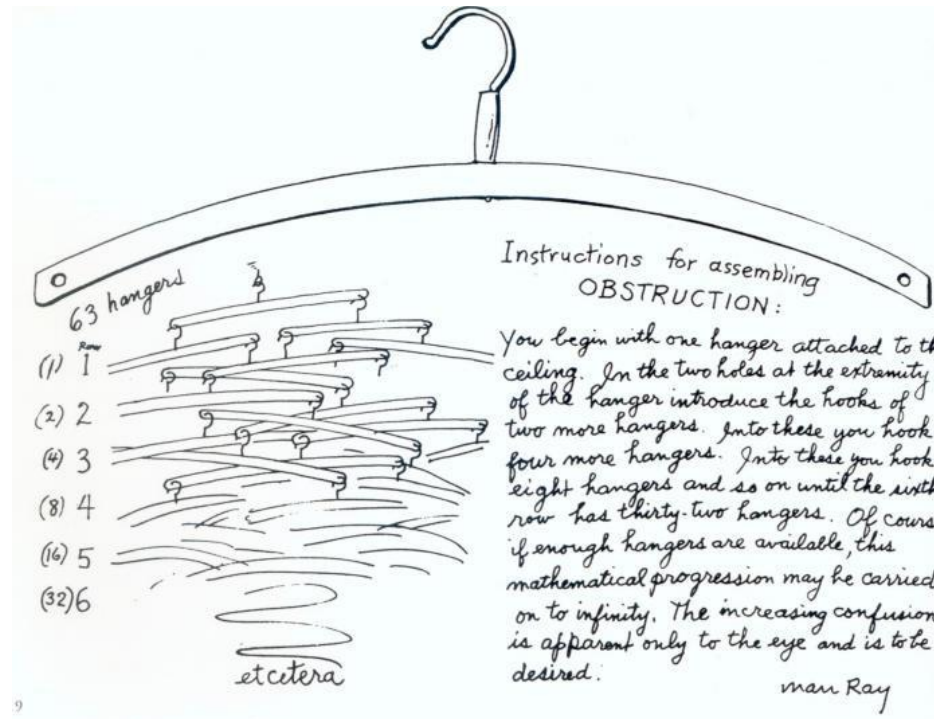 63 hangers
Row
(1) 1
(2) 2
(4) 3
(8) 4
(16) 5
(32) 6
etcetera
Instructions for assembling
OBSTRUCTION:
You begin with one hanger attached to th
ceiling. In the two holes at the extremity
of the hanger introduce the hooks of
two more hangers. Into these you hook
four more hangers. Into these you hook
eight hangers and so on until the sixth
row has thirty-two hangers. Of cours
if enough hangers are available, this
mathematical progression may be carried
on to infinity. The increasing confusion
is apparent only to the eye and is to be
desired.
man Ray
9